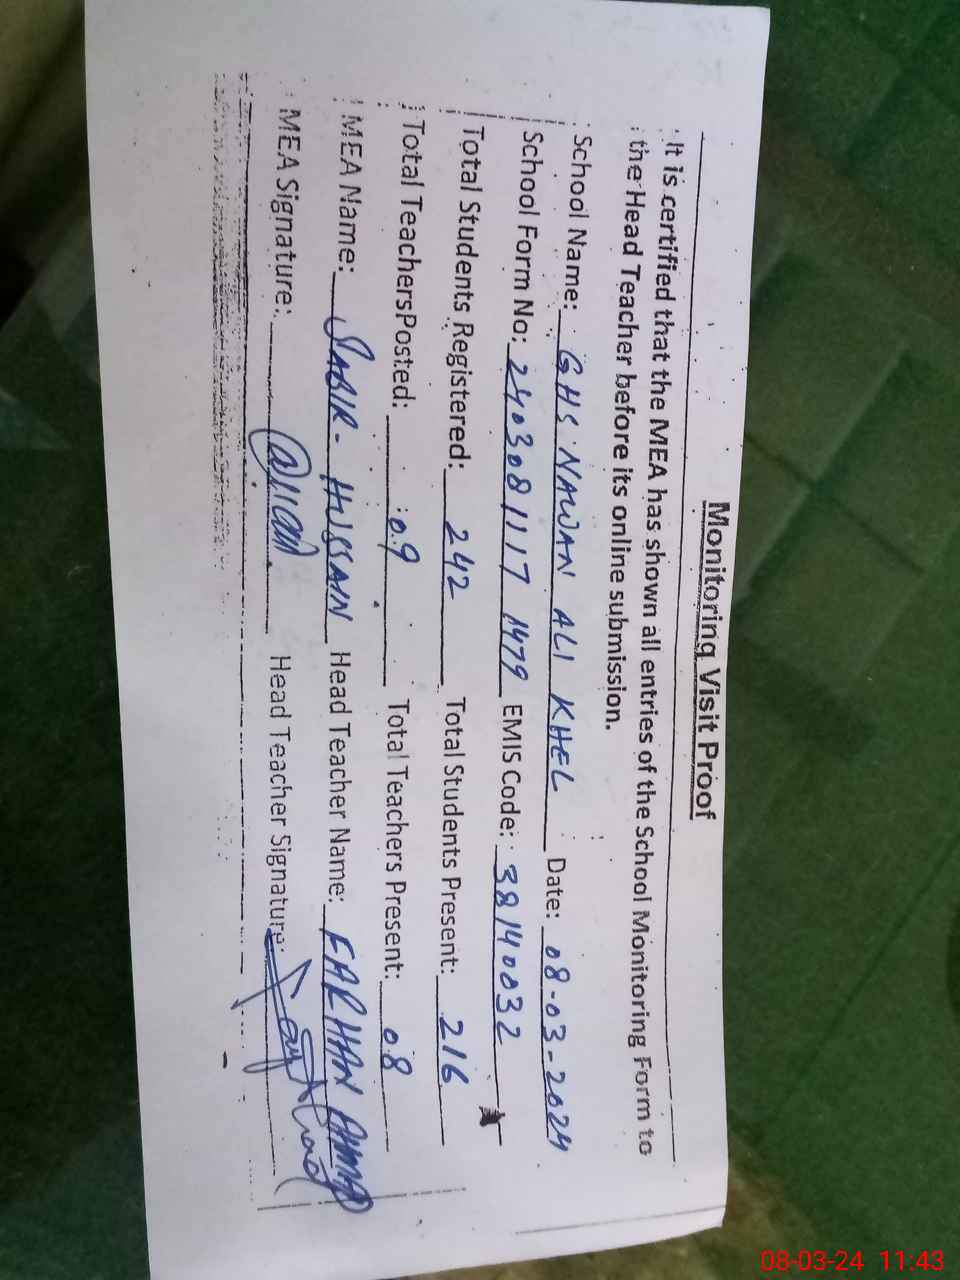 Monitoring Visit Proof
It is certified that the MEA has shown all entries of the School Monitoring Form to
the Head Teacher before its online submission.
School Name: GHS NAWAN ALI KHEL Date: 08-03-2024
School Form No: 240308 1117 1479 EMIS Code: 38140032
Total Students Registered: 242 Total Students Present: 216
Total Teachers Posted: 09 Total Teachers Present: 08
MEA Name: SABIR - HUSSAIN Head Teacher Name: FARHAN AHMAD
MEA Signature: Head Teacher Signature:
08-03-24 11:43